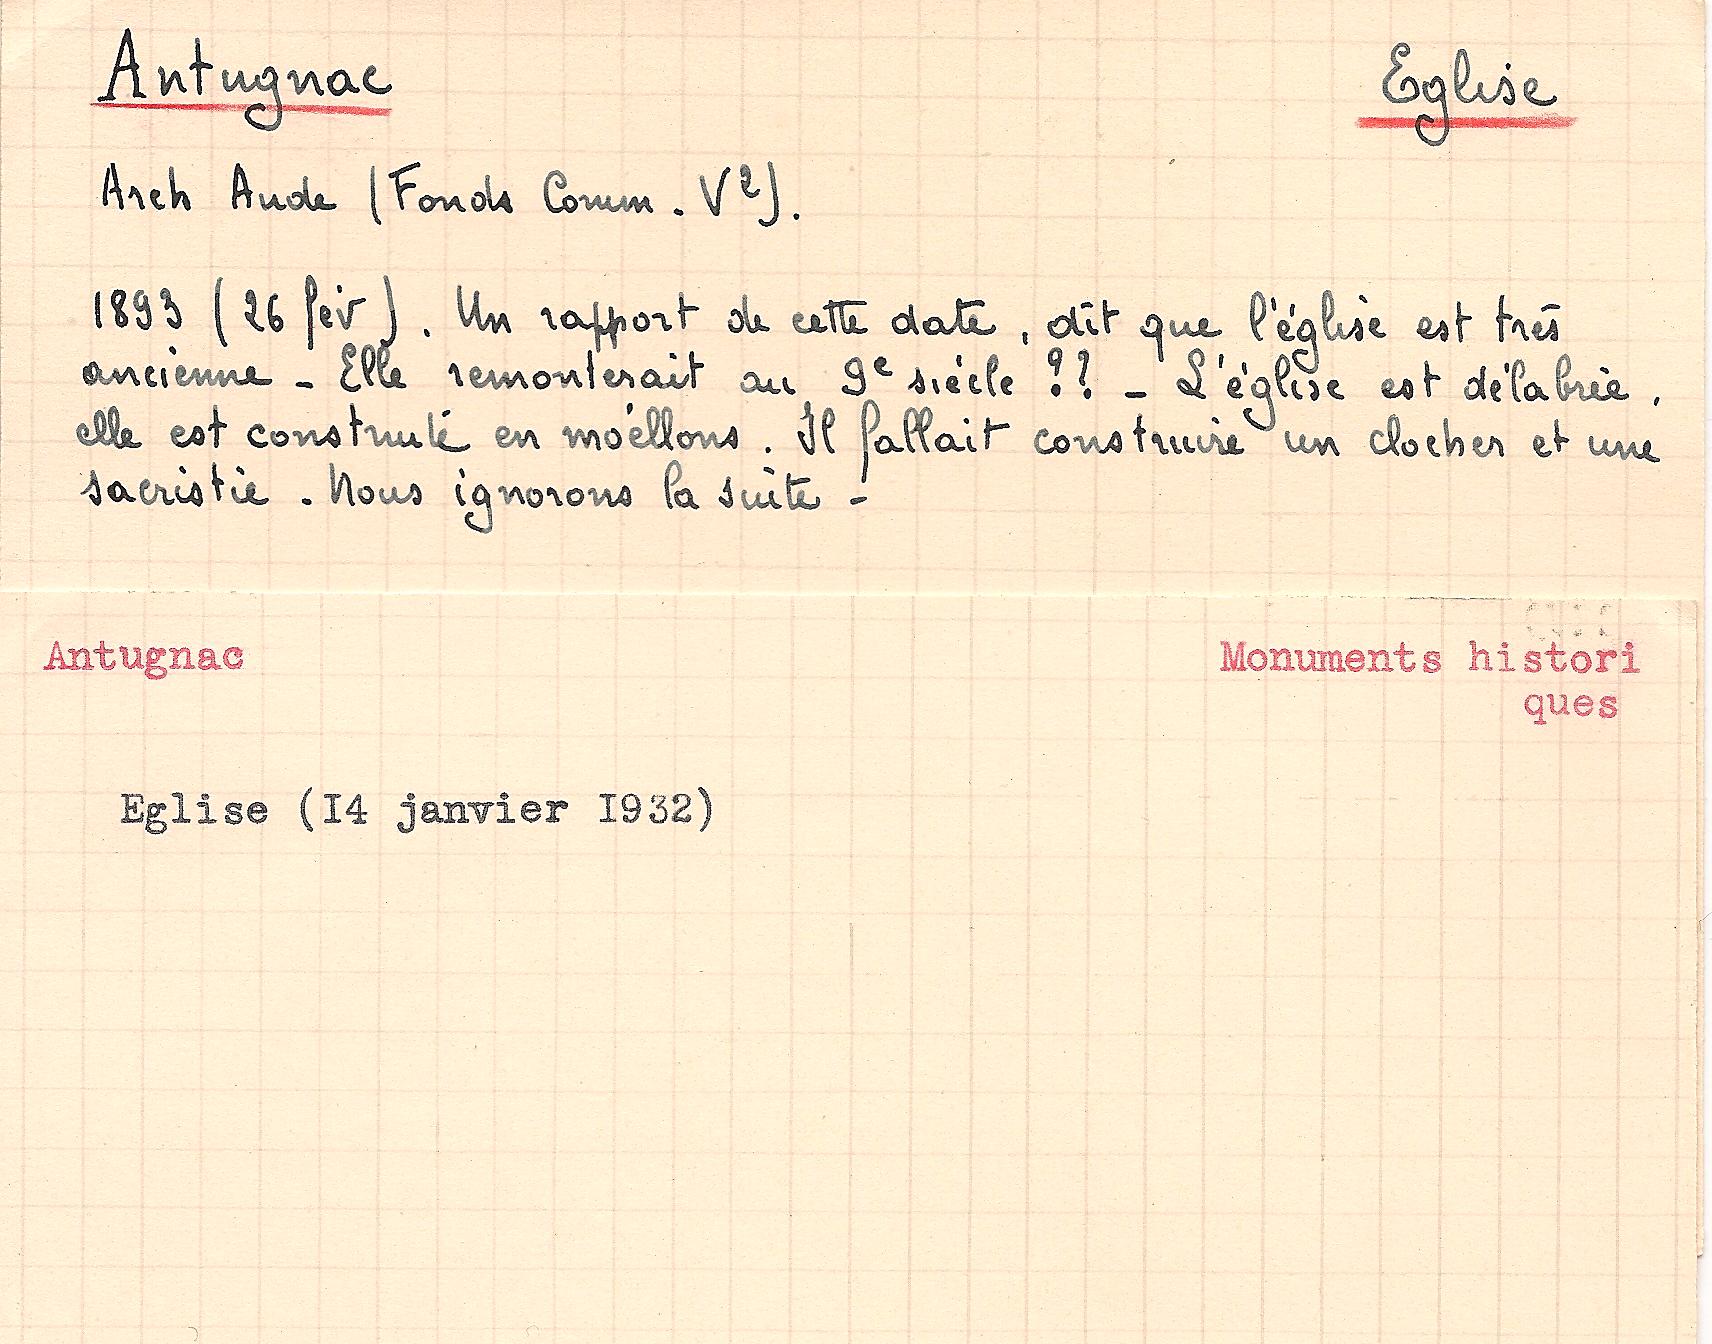 Antugnac Eglise
Arch Aude (Fonds Comm. V²).
1893 (26 fév). Un rapport de cette date, dit que l'église est très
ancienne - Elle remonterait au 9e siècle ?? - L'église est délabrée,
elle est construite en moéllons. Il fallait construire un clocher et une
sacristie. Nous ignorons la suite -
Antugnac Monuments histori
ques
Eglise (I4 janvier I932)